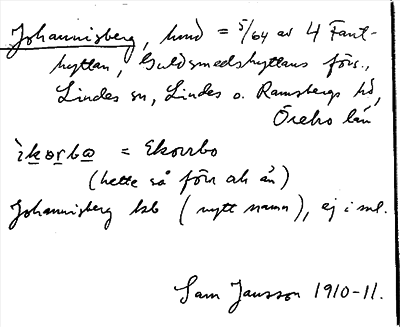 Johannisberg, hmd = 5/64 av 4 Fant-
hyttan, Guldsmedshyttans förs.,
Lindes sn, Lindes o. Ramsbergs hd,
Örebro län
ìkorbo = Ekorrbo
(hette så förr ah än)
Johannisberg bb (nytt namn), ej i ml.
Sam Jansson 1910-11.